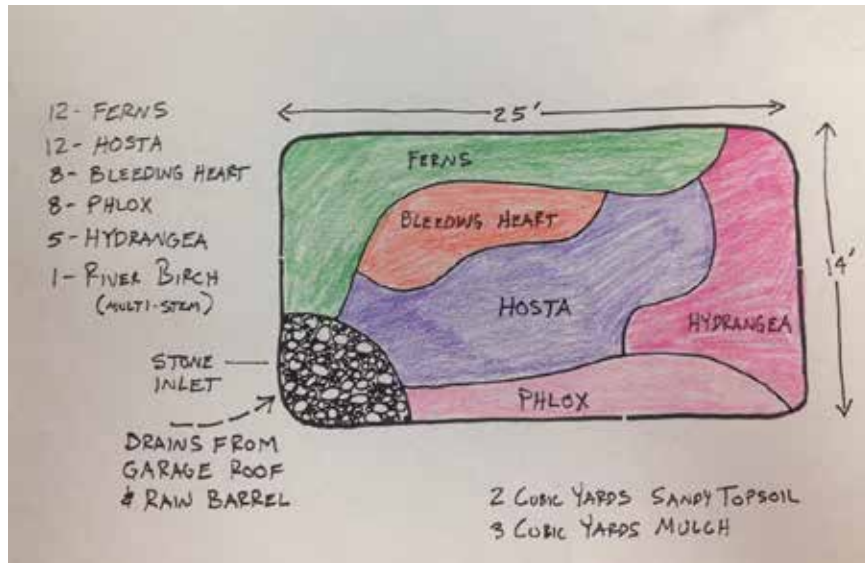 12- FERNS
12- HOSTA
8- BLEEDING HEART
8- PHLOX
5- HYDRANGEA
1- RIVER BIRCH
(MULTI-STEM)
STONE
INLET
DRAINS FROM
GARAGE ROOF
& RAIN BARREL
25'
FERNS
BLEEDING HEART
HOSTA
HYDRANGEA
14'
PHLOX
2 CUBIC YARDS SANDY TOPSOIL
3 CUBIC YARDS MULCH